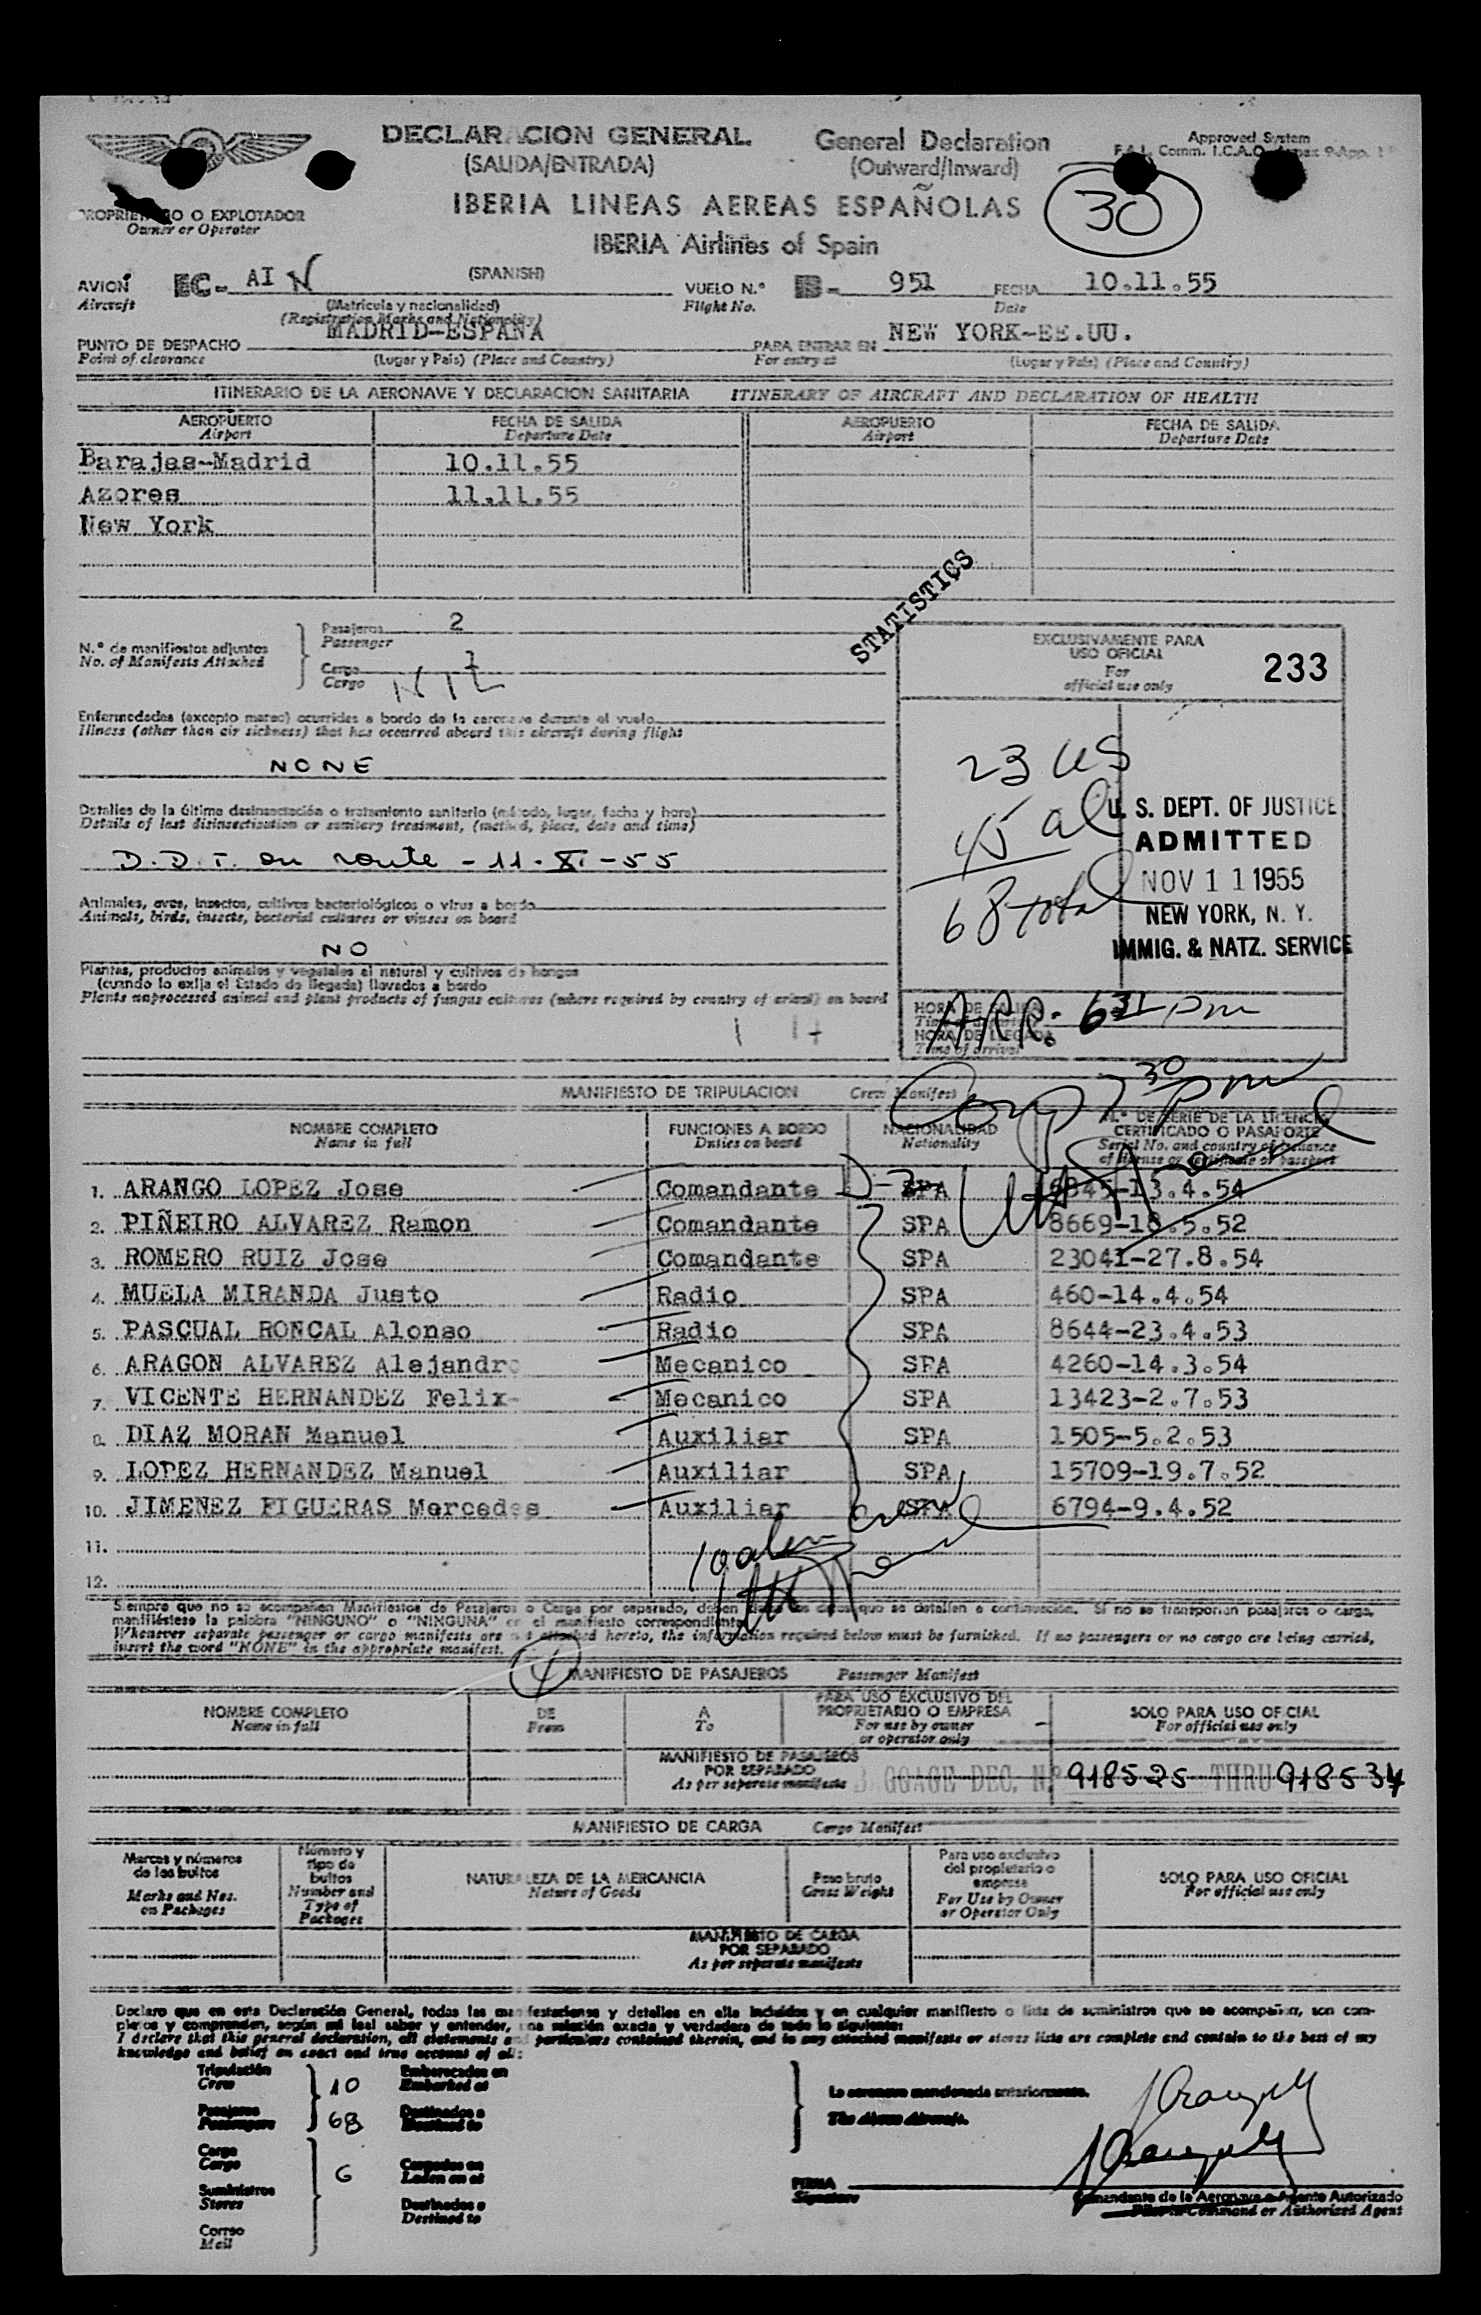 DECLARACION GENERAL General Declaration
(SALIDA/ENTRADA) (Outward/Inward)
Approved System
IBERIA LINEAS AEREAS ESPAÑOLAS
30
IBERIA Airlines of Spain
PROPRIETARIO O EXPLOTADOR
Owner or Operator
(SPANISH)
AVION EC- AI N VUELO N.º B- 951 FECHA 10.11.55
Aircraft (Matricula y nacionalidad) Flight No. Date
(Registration Marks and Nationality)
PUNTO DE DESPACHO MADRID-ESPAÑA PARA ENTRAR EN NEW YORK-EE.UU.
Point of clearance (Lugar y País) (Place and Country) For entry at (Lugar y País) (Place and Country)
ITINERARIO DE LA AERONAVE Y DECLARACION SANITARIA ITINERARY OF AIRCRAFT AND DECLARATION OF HEALTH
AEROPUERTO FECHA DE SALIDA AEROPUERTO FECHA DE SALIDA
Airport Departure Date Airport Departure Date
Barajas-Madrid 10.11.55
Azores 11.11.55
New York
STATISTICS
N.º de manifiestos adjuntos
No. of Manifests Attached
Pasajeros 2
Passenger
Carga
Cargo NIL
EXCLUSIVAMENTE PARA
USO OFICIAL
For
official use only
233
Enfermedades (excepto mareo) ocurridas a bordo de la aeronave durante el vuelo
Illness (other than air sickness) that has occurred aboard this aircraft during flight
NONE
Detalles de la última desinsectación o tratamiento sanitario (método, lugar, fecha y hora)
Details of last disinsectisation or sanitary treatment, (method, place, date and time)
D.D.T. on route - 11-XI-55
Animales, aves, insectos, cultivos bacteriológicos o virus a bordo
Animals, birds, insects, bacterial cultures or viruses on board
NO
Plantas, productos animales y vegetales al natural y cultivos de hongos
(cuando lo exija el Estado de llegada) llevados a bordo
Plants unprocessed animal and plant products of fungus cultures (where required by country of arrival) on board
23 US
45 al
68 total
U. S. DEPT. OF JUSTICE
ADMITTED
NOV 1 1 1955
NEW YORK, N. Y.
IMMIG. & NATZ. SERVICE
HORA DE SALIDA
HORA DE LLEGADA
Time of arrival
ARR. 6 31 pm
Comp 7 30 pm
MANIFIESTO DE TRIPULACION Crew Manifest
NOMBRE COMPLETO FUNCIONES A BORDO NACIONALIDAD N.º DE SERIE DE LA LICENCIA
Name in full Duties on board Nationality CERTIFICADO O PASAPORTE
Serial No. and country of issuance
of license or certificate or passport
1. ARANGO LOPEZ Jose Comandante SPA 5845-13.4.54
2. PIÑEIRO ALVAREZ Ramon Comandante SPA 8669-18.5.52
3. ROMERO RUIZ Jose Comandante SPA 23041-27.8.54
4. MUELA MIRANDA Justo Radio SPA 460-14.4.54
5. PASCUAL RONCAL Alonso Radio SPA 8644-23.4.53
6. ARAGON ALVAREZ Alejandro Mecanico SPA 4260-14.3.54
7. VICENTE HERNANDEZ Felix Mecanico SPA 13423-2.7.53
8. DIAZ MORAN Manuel Auxiliar SPA 1505-5.2.53
9. LOPEZ HERNANDEZ Manuel Auxiliar SPA 15709-19.7.52
10. JIMENEZ FIGUERAS Mercedes Auxiliar SPA 6794-9.4.52
11.
12.
10 alien crew
Siempre que no se acompañen Manifiestos de Pasajeros o Carga por separado, deben darse los datos que se detallen a continuación. Si no se transportan pasajeros o carga,
manifiéstese la palabra "NINGUNO" o "NINGUNA" en el manifiesto correspondiente.
Whenever separate passenger or cargo manifests are not attached hereto, the information required below must be furnished. If no passengers or no cargo are being carried,
insert the word "NONE" in the appropriate manifest.
MANIFIESTO DE PASAJEROS Passenger Manifest
NOMBRE COMPLETO DE A PARA USO EXCLUSIVO DEL SOLO PARA USO OFICIAL
Name in full From To PROPRIETARIO O EMPRESA For official use only
For use by owner
or operator only
MANIFIESTO DE PASAJEROS
POR SEPARADO
As per separate manifests
BAGGAGE DEC. Nº 918525 THRU 918534
MANIFIESTO DE CARGA Cargo Manifest
Marcas y números
de los bultos
Marks and Nos.
on Packages
Número y
tipo de
bultos
Number and
Type of
Packages
NATURALEZA DE LA MERCANCIA
Nature of Goods
Peso bruto
Gross Weight
Para uso exclusivo
del propietario o
empresa
For Use by Owner
or Operator Only
SOLO PARA USO OFICIAL
For official use only
MANIFIESTO DE CARGA
POR SEPARADO
As per separate manifests
Declaro que en esta Declaración General, todas las manifestaciones y detalles en ella incluidos y en cualquier manifiesto o lista de suministros que se acompañan, son com-
pletos y comprenden, según mi leal saber y entender, una relación exacta y verdadera de todo lo siguiente:
I declare that this general declaration, all statements and particulars contained therein, and in any attached manifests or stores lists are complete and contain to the best of my
knowledge and belief an exact and true account of all:
Tripulación
Crew 10
Embarcados en
Embarked at
Pasajeros
Passengers 68
Destinados a
Destined to
La aeronave mencionada anteriormente.
The Above Aircraft.
Carga
Cargo 6
Cargados en
Laden on at
Suministros
Stores
Destinados a
Destined to
Correo
Mail
FIRMA
Signature
Comandante de la Aeronave o Agente Autorizado
Pilot in Command or Authorized Agent